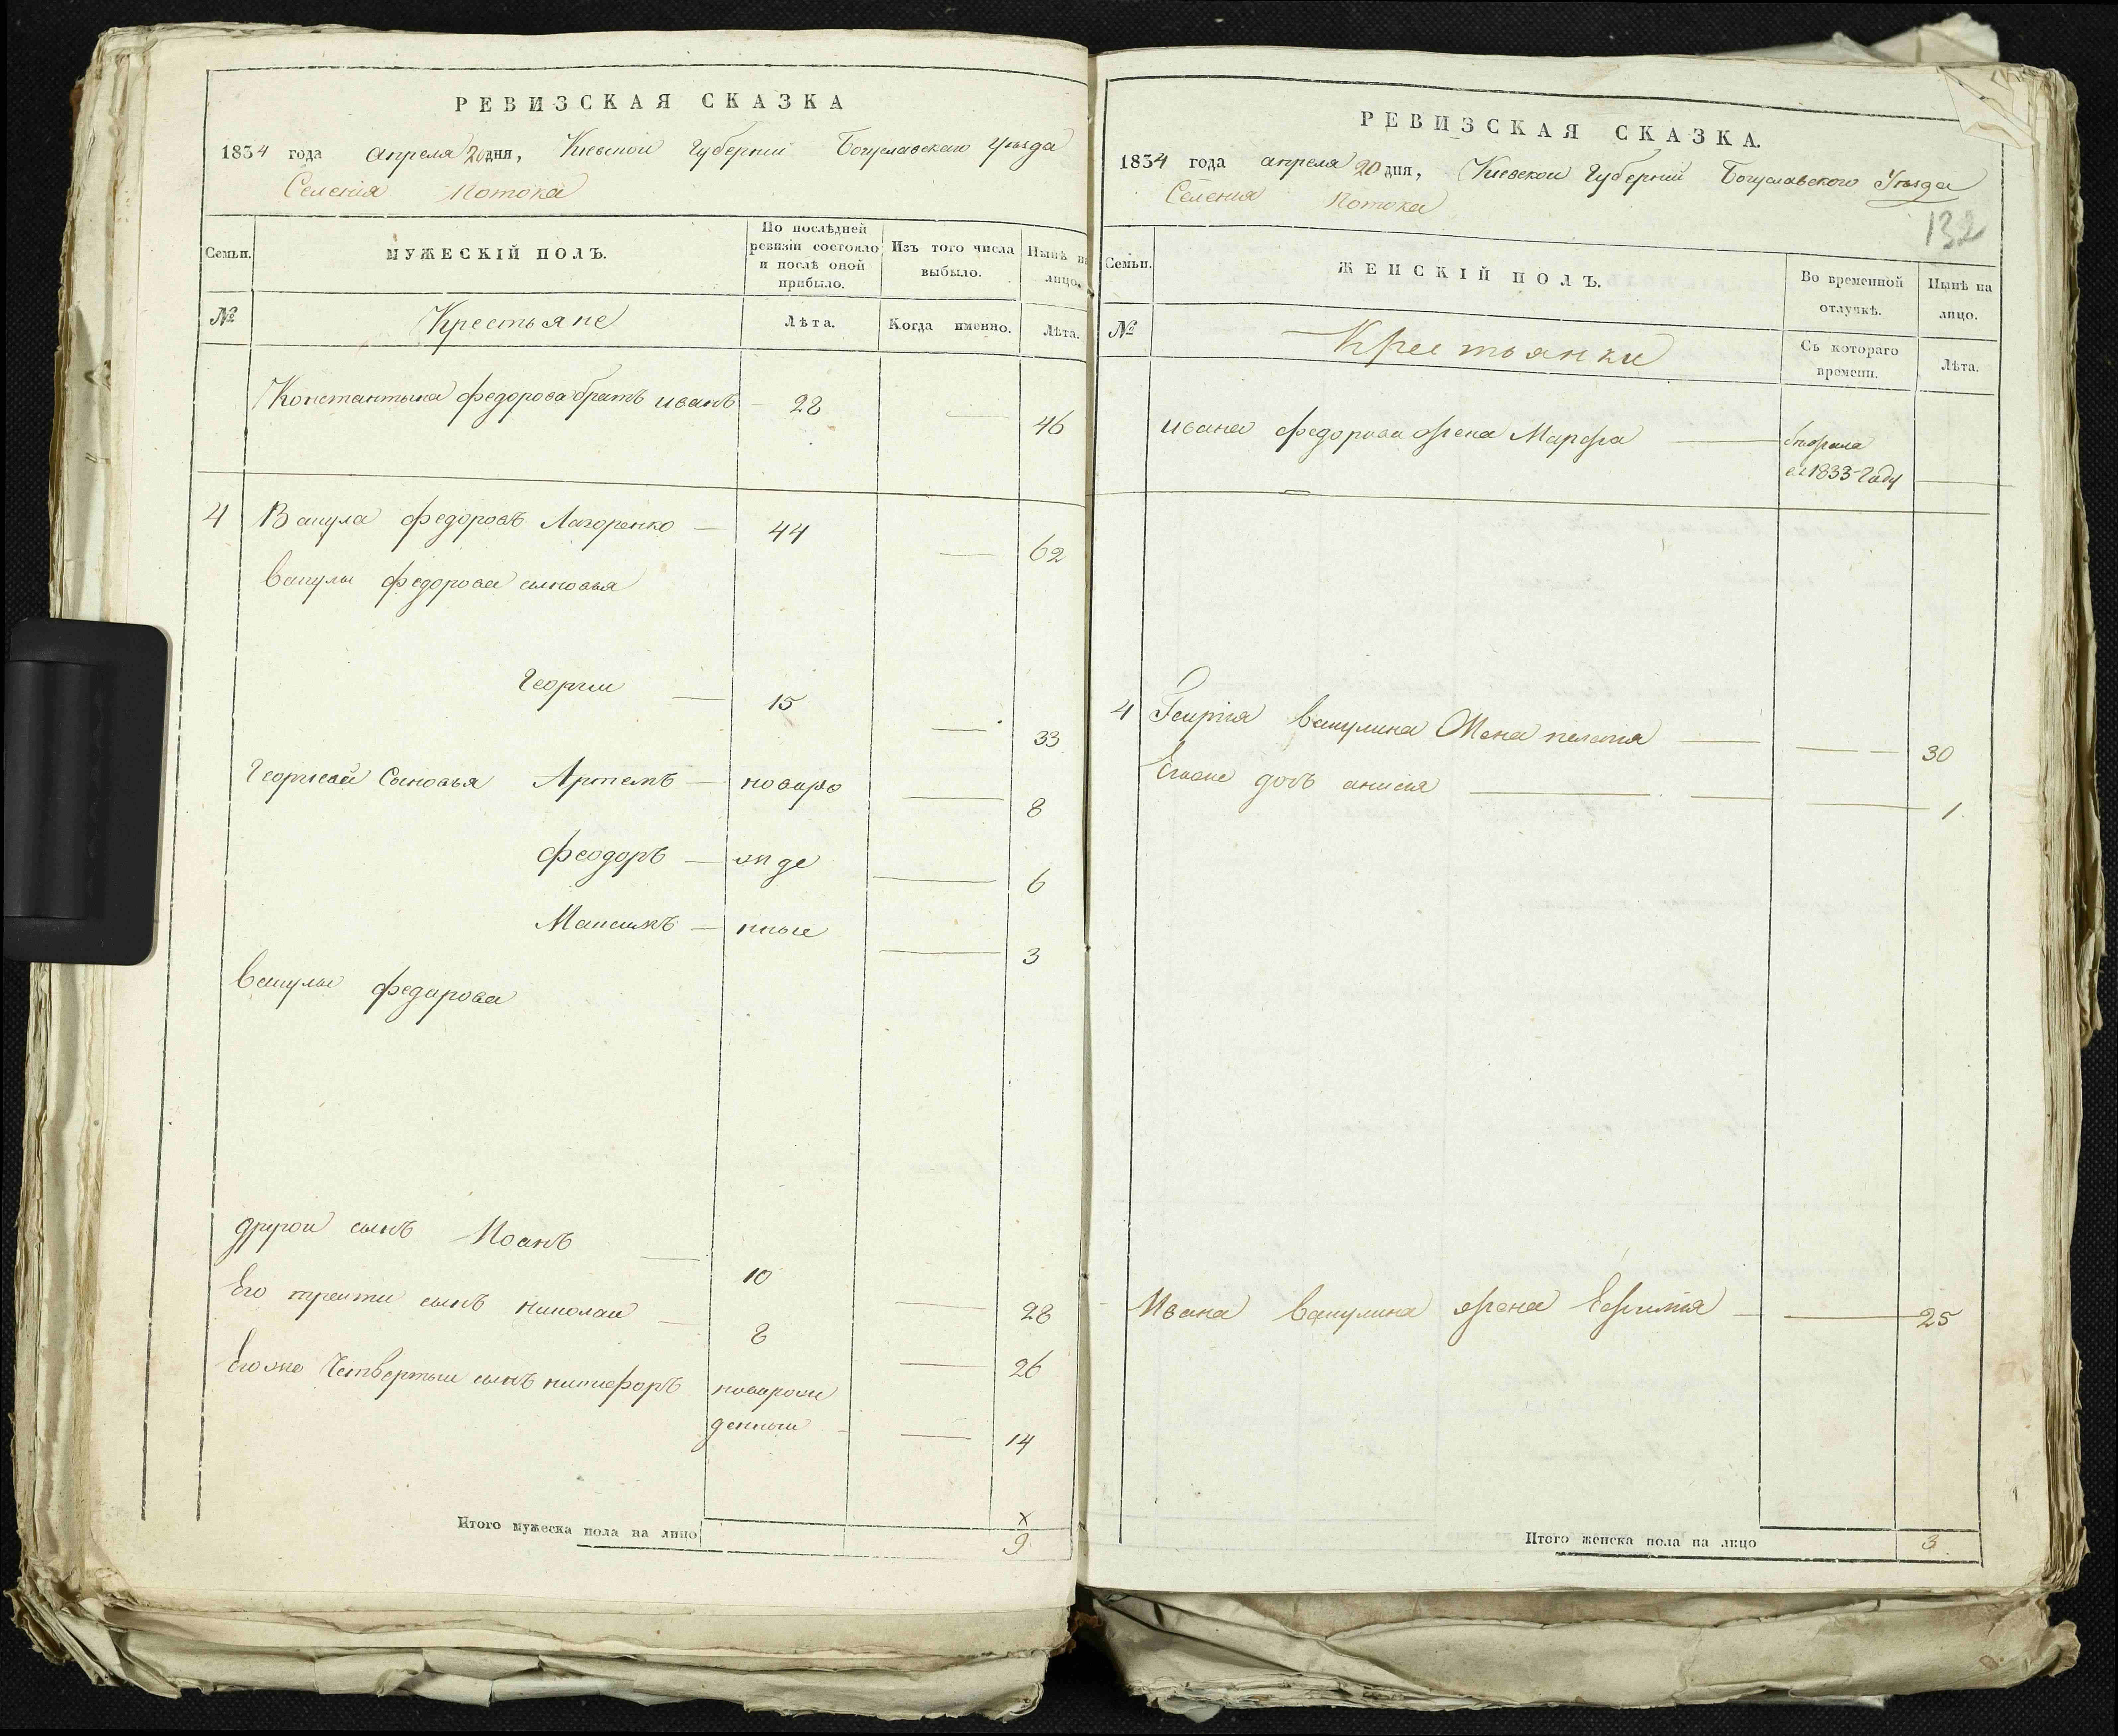 РЕВИЗСКАЯ СКАЗКА
1834 года апреля 20 дня, Киевской Губернии Богуславского Уезда
Селения Потока
Семьи.
МУЖЕСКІЙ ПОЛЪ.
По послѣдней ревизіи состояло и послѣ оной прибыло.
Изъ того числа выбыло.
Нынѣ на лицо.
№
Крестьяне
Лѣта.
Когда именно.
Лѣта.
Константина федорова братъ иванъ 28 46
4 Вакула федоровъ Лазоренко 44 62
вакулы федорова сыновья
Георгии 15 33
Георгиевы Сыновья Артемъ новоро 8
феодоръ жде 6
Максимъ нные 3
вакулы федорова
другои сынъ Иоанъ 10 28
Его третти сынъ николаи 8 26
Егоже Четвертыи сынъ никифоръ новорож
денныи 14
Итого мужеска пола на лицо
х
9
РЕВИЗСКАЯ СКАЗКА.
1834 года апреля 20 дня, Киевской Губернии Богуславского Уезда
Селения Потока
132
Семьи.
ЖЕНСКІЙ ПОЛЪ.
Во временной отлучкѣ.
Нынѣ на лицо.
№
Крестьянки
Съ котораго времени.
Лѣта.
ивана федорова жена Марфа
1833 Году
4 Георгия вакулина Жена пелагия 30
Егоже дочь анисия 1
Ивана вакулина жена Ефимия 25
Итого женска пола на лицо 3